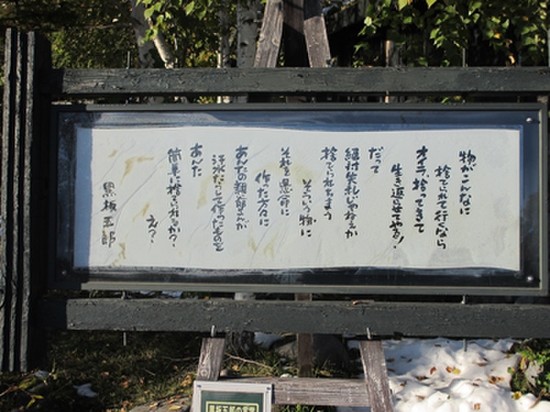 物がこんなに
捨てられて行くなら
オイラ、拾ってきて
生き返らせてやる!
だって
絶対失礼じゃねえか
捨てられちまう
そういう物に
それを懸命に
作った方々に
あんたの親父さんが
汗水たらして作ったもので
あんた
簡単に捨てられるか?
えっ?
黒板五郎